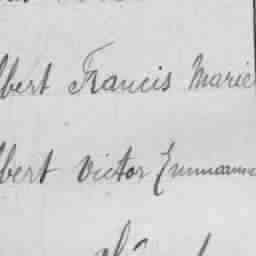 lbert Francis Marie
lbert Victor Emmanu